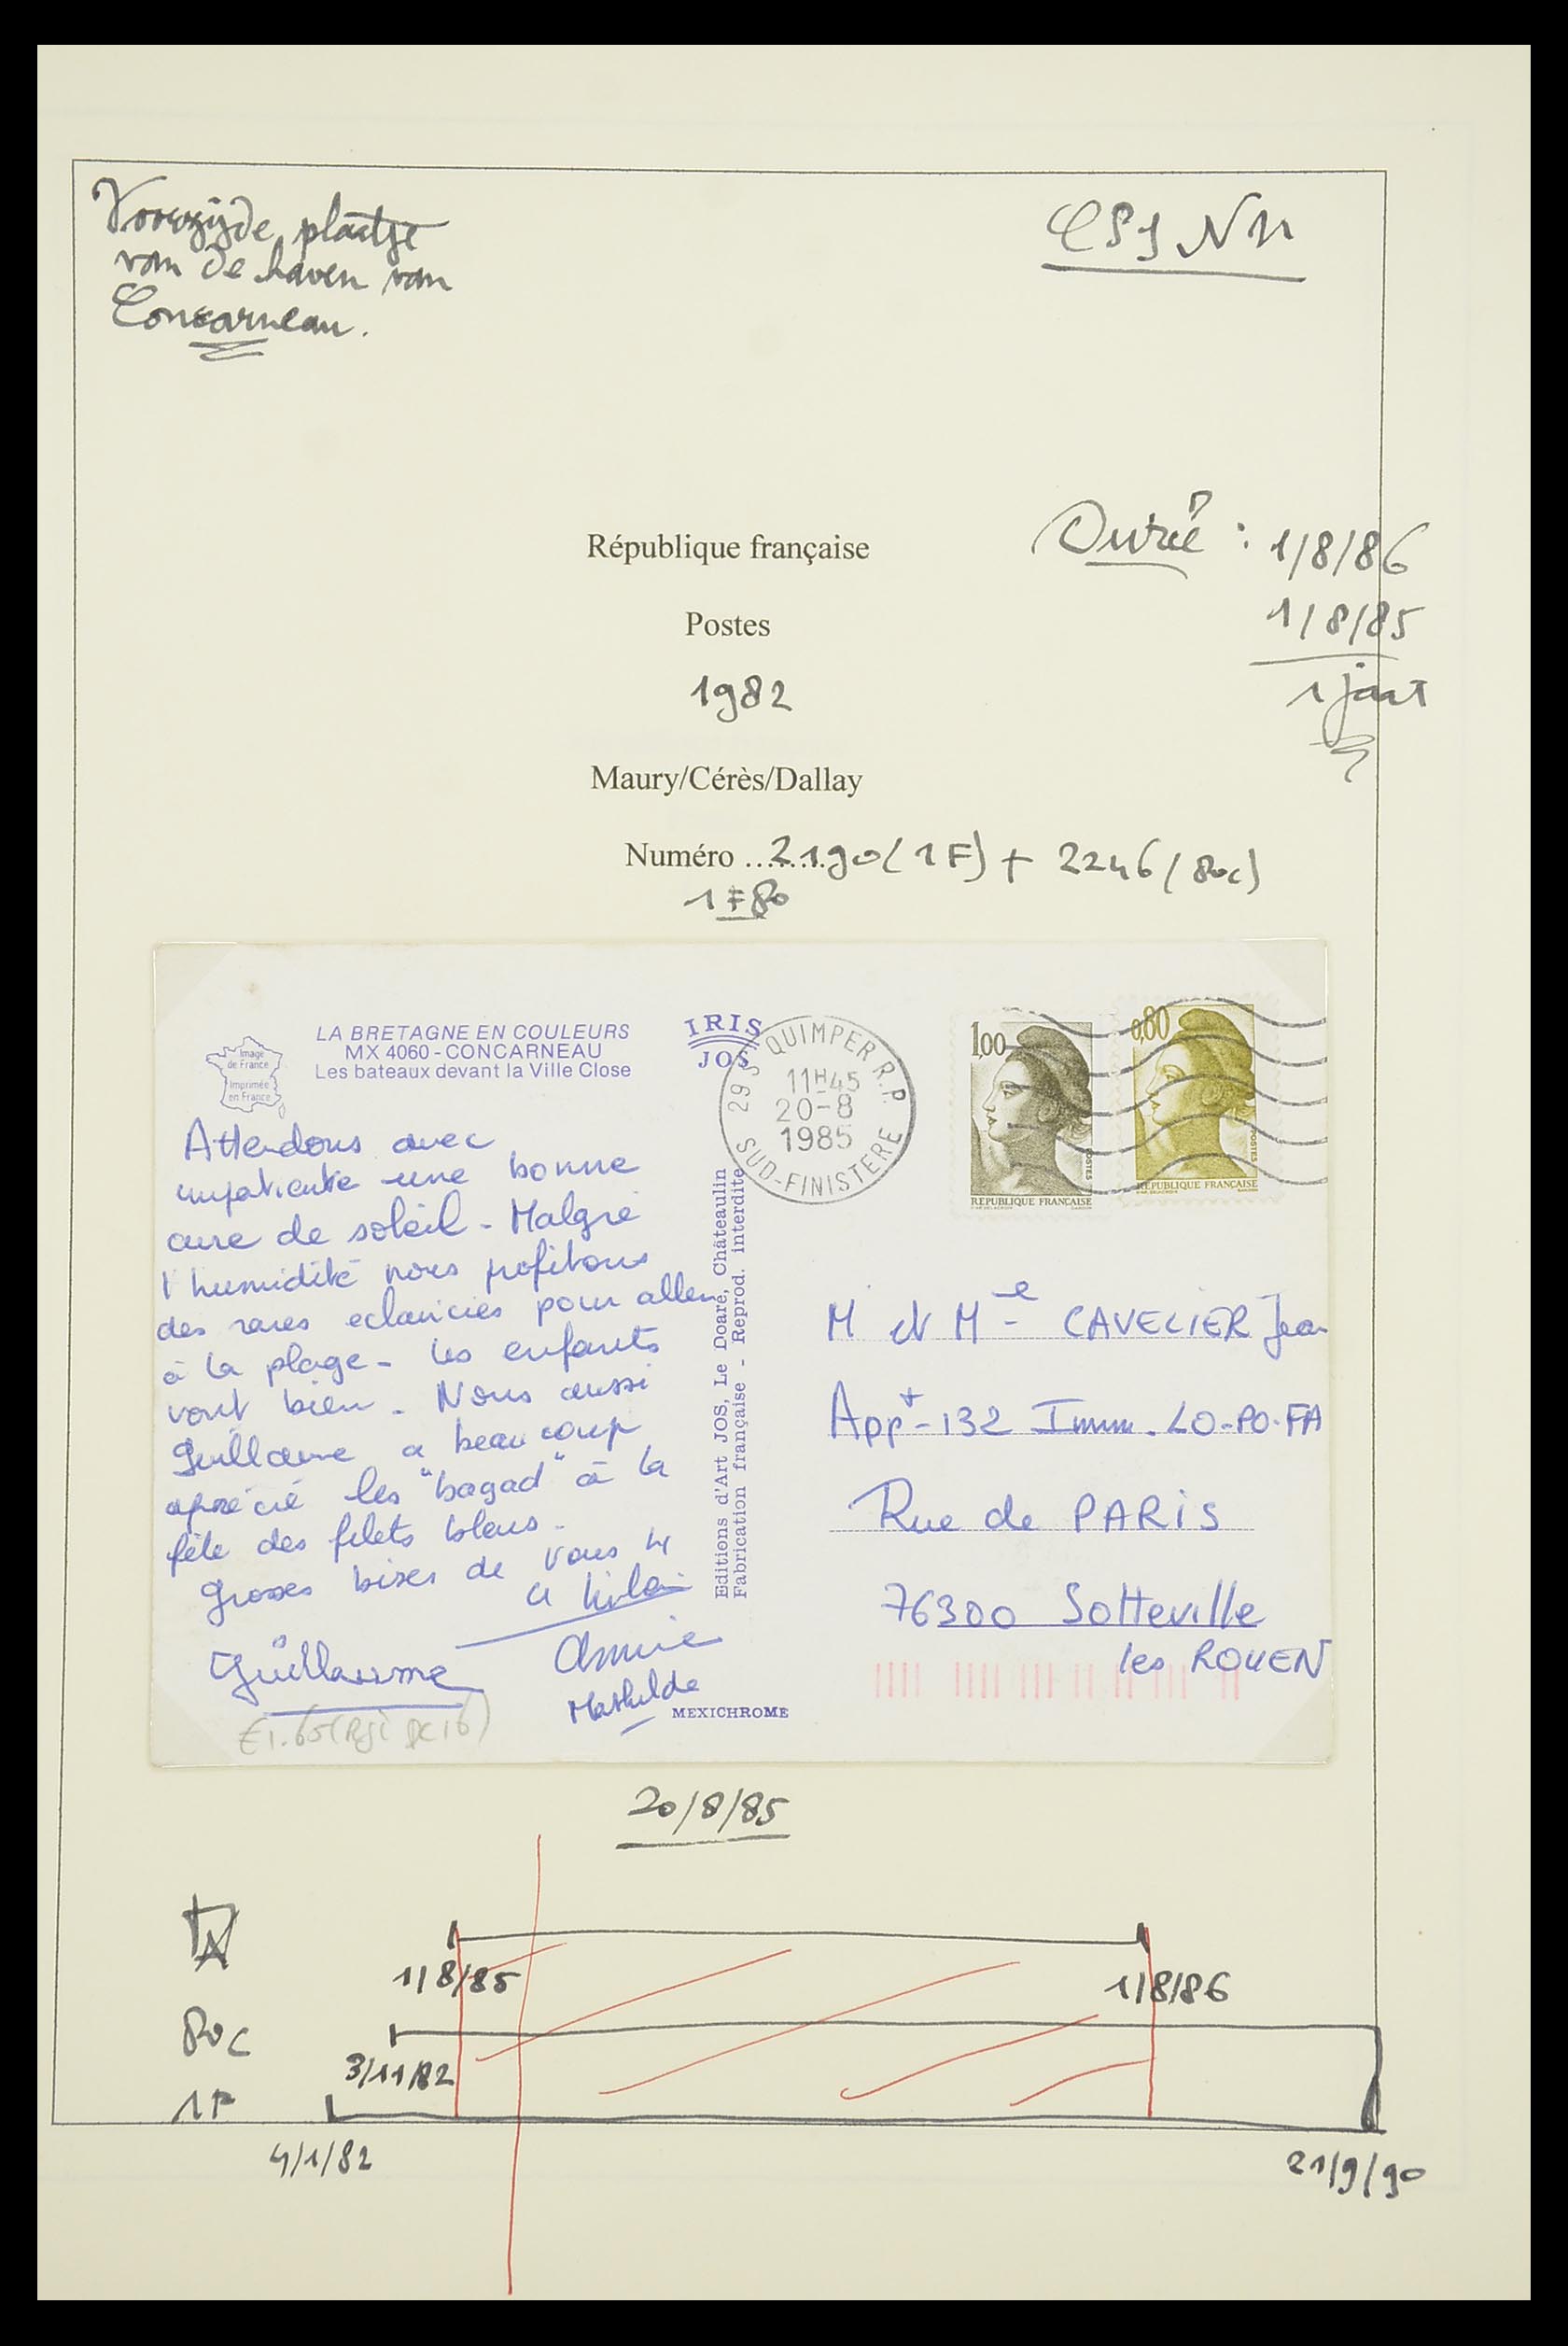 Voorzijde plaatje
van de haven van
Concarneau.
CS9 N11
République française
Postes
1982
Durée : 1/8/86
1/8/85
1 jaar
Maury/Cérès/Dallay
Numéro ........2190 (1F) + 2246 (80c)
1F80
Image
de France
Imprimée
en France
LA BRETAGNE EN COULEURS
MX 4060 - CONCARNEAU
Les bateaux devant la Ville Close
IRIS
JOS
29 S QUIMPER R.P.
11H45
20-8
1985
SUD-FINISTERE
1,00
POSTES
REPUBLIQUE FRANÇAISE
0,80
POSTES
REPUBLIQUE FRANÇAISE
Attendons avec
impatience une bonne
cure de soleil - Malgré
l'humidité nous profitons
des rares eclaircies pour aller
à la plage - les enfants
vont bien - Nous aussi
Guillaume a beaucoup
aprécié les "bagad" à la
fête des filets bleus -
Grosses bises de vous 4
Guillaume
Annie
Mathilde
Editions d'Art JOS, Le Doaré, Châteaulin
Fabrication française - Reprod. interdite
MEXICHROME
M et Mme CAVELIER Jean
Appt - 132 Imm. LO-PO-FA
Rue de PARIS
76300 Sotteville
les ROUEN
20/8/85
1/8/85
1/8/86
80c
3/11/82
1F
4/1/82
21/9/90